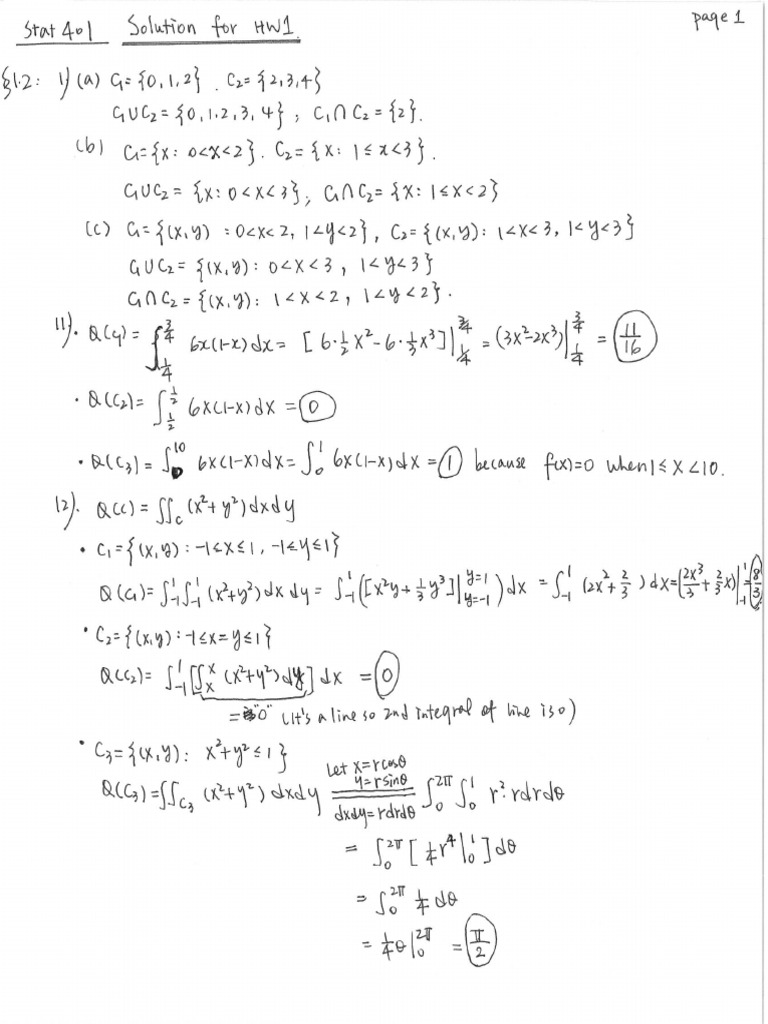 Stat 401 Solution for HW1. page 1
§1.2: 1) (a) C₁={0,1,2}. C₂={2,3,4}
C₁∪C₂={0,1.2,3,4}; C₁∩C₂={2}.
(b) C₁={x: 0<x<2}. C₂={x: 1≤x<3}.
C₁∪C₂={x: 0<x<3}; C₁∩C₂={x: 1≤x<2}
(c) C₁={(x,y): 0<x<2, 1<y<2}, C₂={(x,y): 1<x<3, 1<y<3}
C₁∪C₂={(x,y): 0<x<3, 1<y<3}
C₁∩C₂={(x,y): 1<x<2, 1<y<2}.
11). Q(C₁)=∫_{1/4}^{3/4} 6x(1-x)dx = [6·½x²-6·⅓x³]|_{1/4}^{3/4} = (3x²-2x³)|_{1/4}^{3/4} = 11/16
· Q(C₂)=∫_{1/2}^{1/2} 6x(1-x)dx = 0
· Q(C₃)=∫_0^{10} 6x(1-x)dx=∫_0^1 6x(1-x)dx=1 because f(x)=0 when 1≤x<10.
12). Q(C)=∬_C (x²+y²)dxdy
· C₁={(x,y): -1≤x≤1, -1≤y≤1}
Q(C₁)=∫_{-1}^1∫_{-1}^1 (x²+y²)dxdy = ∫_{-1}^1([x²y+⅓y³]|_{y=-1}^{y=1})dx = ∫_{-1}^1 (2x²+2/3)dx=(2x³/3+2/3x)|_{-1}^1=8/3
· C₂={(x,y): -1≤x=y≤1}
Q(C₂)=∫_{-1}^1[∫_x^x (x²+y²)dy]dx = 0
= "0" (it's a line so 2nd integral of line is 0)
· C₃={(x,y): x²+y²≤1}
Let x=rcosθ
y=rsinθ
Q(C₃)=∬_{C₃} (x²+y²)dxdy = ∫_0^{2π}∫_0^1 r²·rdrdθ
dxdy=rdrdθ
= ∫_0^{2π}[¼r⁴|_0^1]dθ
= ∫_0^{2π} ¼dθ
= ¼θ|_0^{2π} = π/2